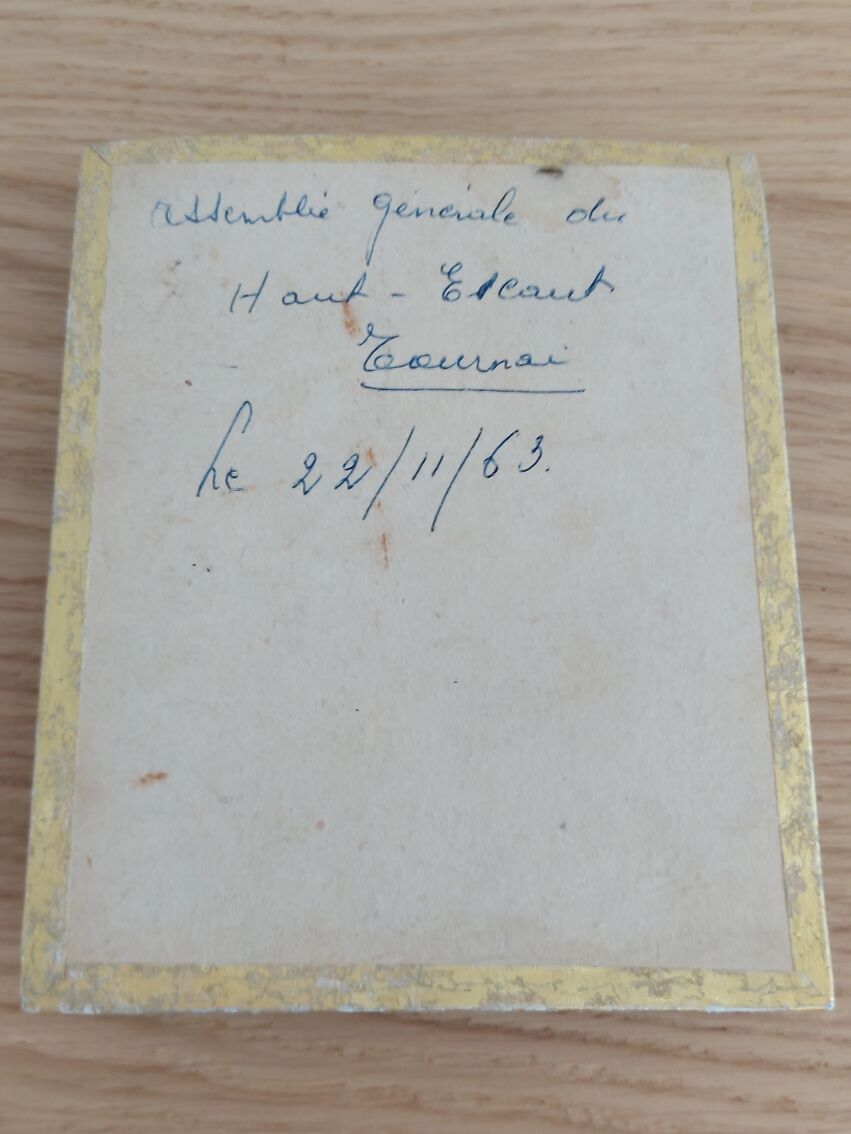 assemblée générale du
Haut - Escaut
Tournai
Le 22/11/63.